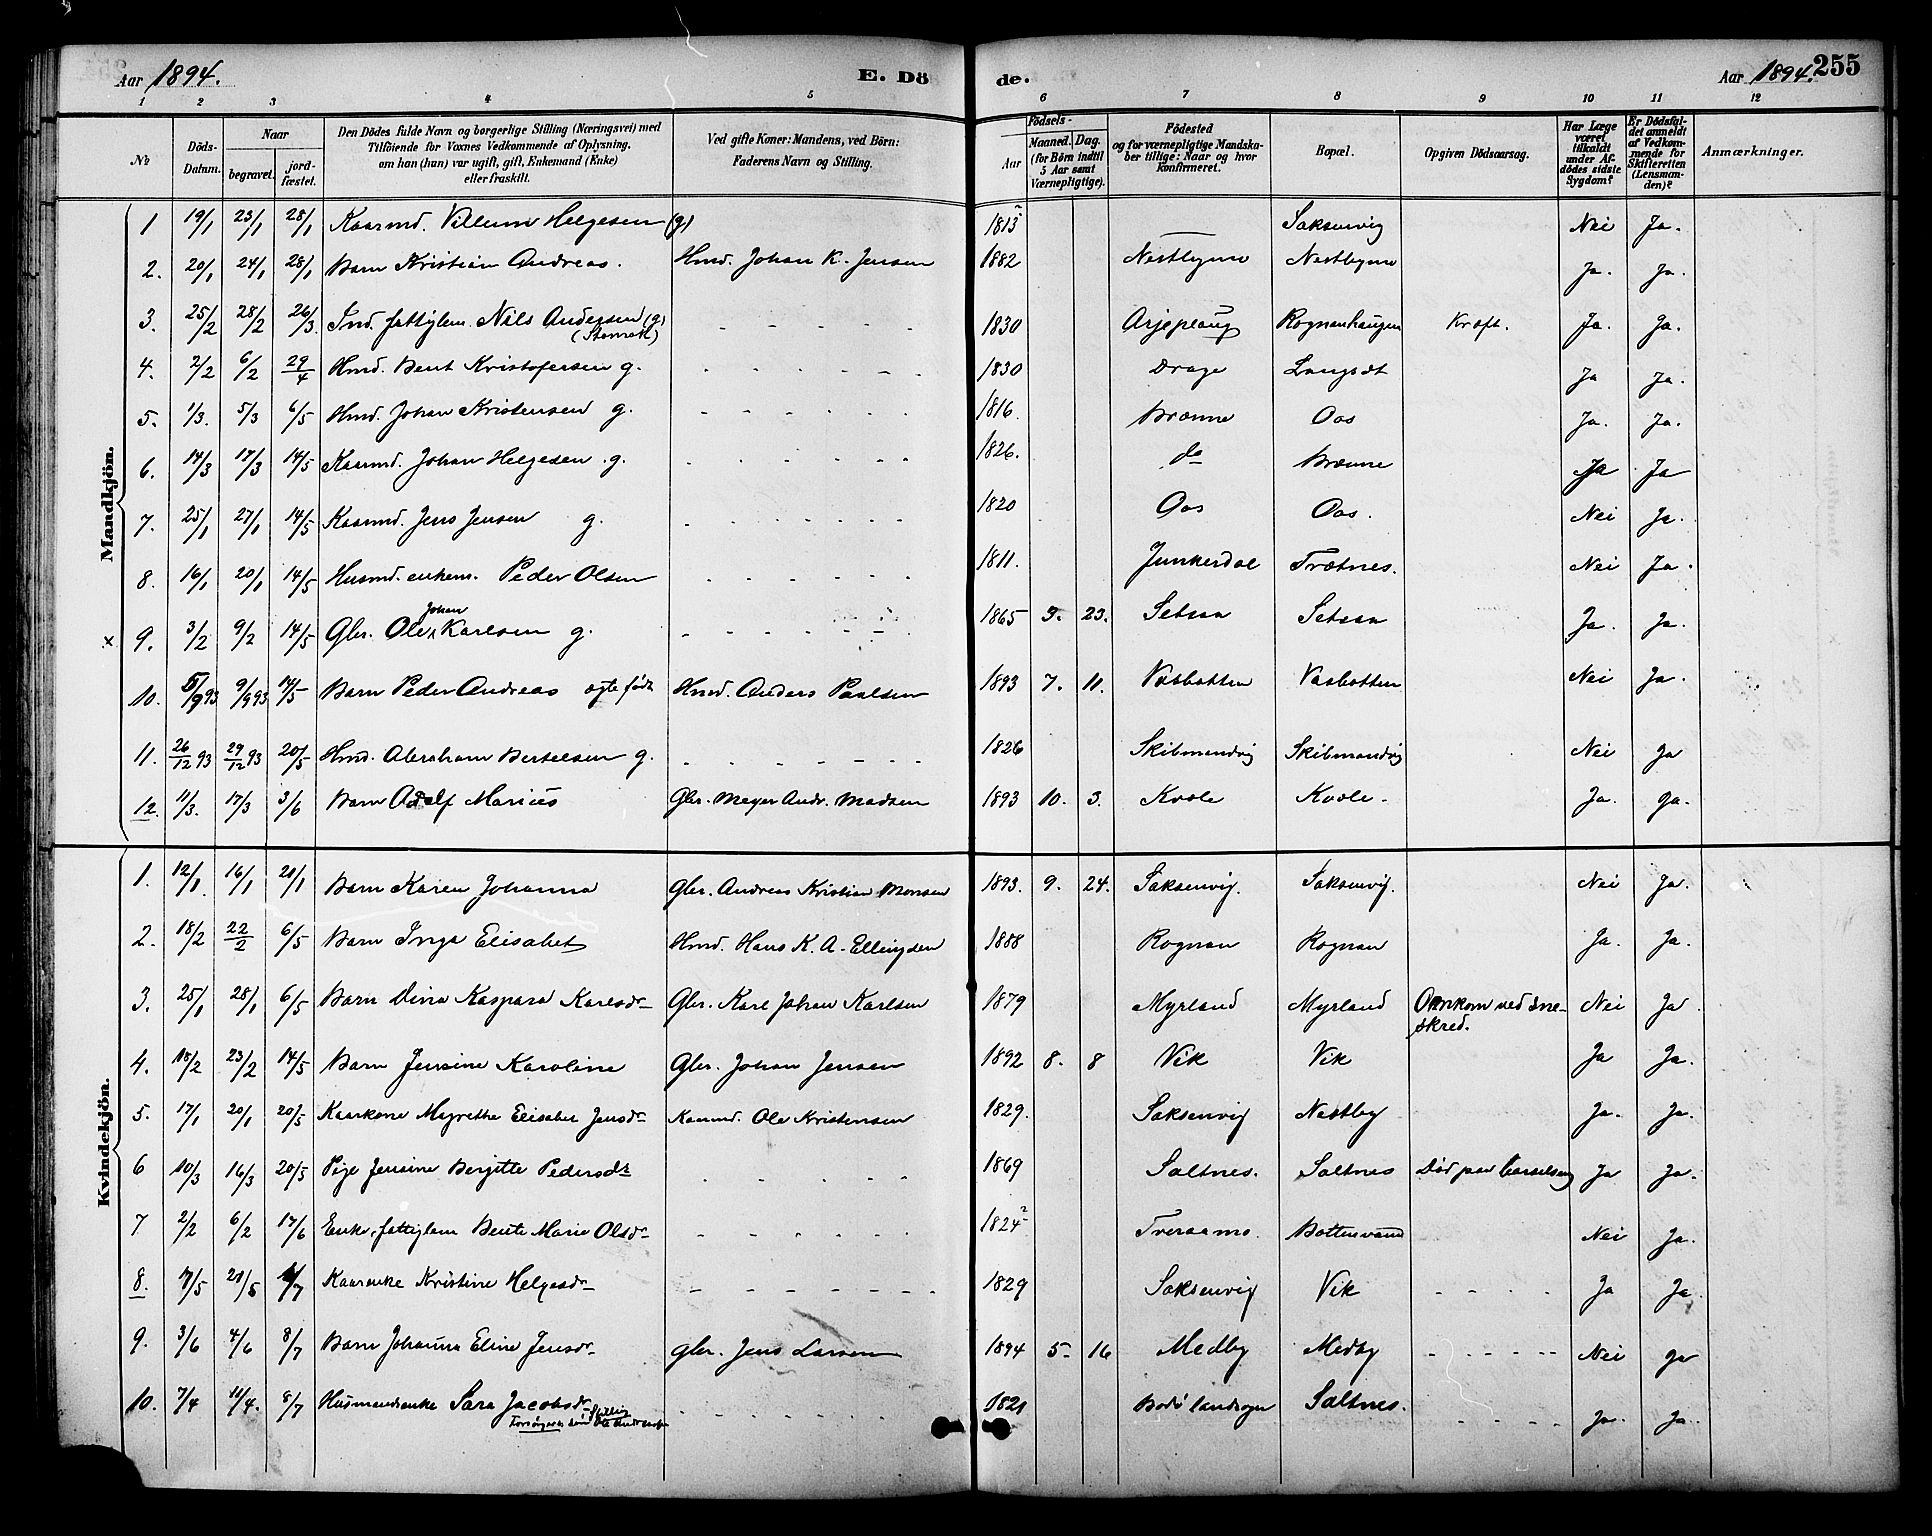 Aar 1894. E. Dö de. Aar 1894. 255
1 2 3 4 5 6 7 8 9 10 11 12
No
Döds-Datum.
Naar
begravet.
jord-fæstet.
Den Dödes fulde Navn og borgerlige Stilling (Næringsvei) med
Tilföiende for Voxnes Vedkommende af Oplysning,
om han (hun) var ugift, gift, Enkemand (Enke)
eller fraskilt.
Ved gifte Koner: Mandens, ved Börn:
Faderens Navn og Stilling.
Födsels-
Aar
Maaned. Dag.
(for Börn indtil
5 Aar samt
Værnepligtige).
Födested
og for værnepligtige Mandska-
ber tillige: Naar og hvor
konfirmeret.
Bopæl.
Opgiven Dödsaarsag.
Har Læge
været
tilkaldt
under Af-
dödes sidste
Sygdom?
Er Dödsfal-
det anmeldt
af Vedkom-
mende for
Skifteretten
(Lensman-
den)?
Anmærkninger.
Mandkjön.
1 19/1 23/1 28/1 Kaarmd. Villum Helgesen (g) 1813 Saksenvig Nei Ja.
2. 20/1 24/1 28/1 Barn Kristian Andreas. Hmd. Johan K. Jensen 1882 Nestbynn Nestbynn Ja. Ja.
3. 25/2 28/2 26/3. Ind. fattiglem Nils Andersen (g) 1830 Arjeplaug Rognanhaugen Kræft. Ja. Ja.
4. 2/2 6/2 29/4 Hmd. Bent Kristofersen g. 1830 Drage Langsdt Ja Ja.
5. 1/3. 5/3 6/5 Hmd. Johan Kristensen g. 1816 Brænne Oos Ja. Ja.
6. 14/3 17/3 14/5 Kaarmd. Johan Helgesen g. 1826. do Brænne Ja Ja
7. 25/1 27/1 14/5 Kaarmd. Jens Jensen g. 1820 Oos Oos. Nei Ja.
8. 16/1 20/1 14/5 Husmd. enkem. Peder Olsen 1811. Junkerdal Trætnes. Nei Ja.
x 9. 3/2 9/2 14/5 Gbr. Ole Johan Karlsen g. 1865 3. 23. Setsaa Setsaa Ja. Ja.
10. 5/9 93 9/9 93 14/5 Barn Peder Andreas ægte født Hmd. Anders Paulsen 1893 7. 11. Vasbotten Vasbotten Nei Ja.
11. 26/12 93 29/12 93 20/5 Hmd. Abraham Bertelsen g. 1826 Skibmandvig Skibmandvig Nei Ja
12. 11/3. 17/3 3/6 Barn Adolf Marius Gbr. Meyer Andr. Madsen 1893 10. 3. Kvæle Kvæle. Ja. Ja.
Kvindekjön.
1. 12/1 16/1 21/1 Barn Karen Johanna Gbr. Andreas Kristian Monsen 1893. 9. 24. Saksenvig. Saksenvig. Nei Ja.
2. 18/2 22/2 6/5 Barn Inga Elisabet Hmd. Hans K. A. Ellingsen 1888 Rognan Rognan Ja. Ja.
3. 25/1 28/1 6/5 Barn Dina Kaspara Karlsdr Gbr. Karl Johan Karlsen 1879 Myrland Myrland Omkom ved sne- Nei Ja
skred.
4. 18/2 23/2 14/5 Barn Jensine Karoline Gbr. Johan Jensen 1892 8. 8 Vik Vik Ja Ja.
5. 17/1 20/1 20/5 Kaarkone Magrethe Elisabet Jensdr Kaarmd. Ole Kristensen 1829. Saksenvig Nestby Ja. Ja.
6 10/3 16/3 20/5 Pige Jensine Bergitte Pedersdr 1869 Saltnes. Saltnes Død paa barselseng Ja Ja.
7 2/2 6/2 17/6 Enke, fattiglem Bente Marie Olsdr 1824 2 Tveraamo. Bottenvand Nei Ja.
8. 17/5 21/5 /7 Kaarenke Kristine Helgesdr 1829 Saksenvig Vik Ja Ja.
9. 3/6 4/6 8/7 Barn Johanna Eline Jensdr Gbr. Jens Larsen 1894 5. 16 Medby Medby Nei Ja
10. 7/4 11/4. 8/7 Husmandsenke Sara Jacobsdr 1821 Bodö landsogn Saltnes. Ja. Ja.